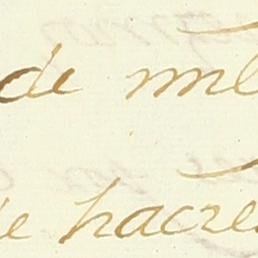 de mil
de hacre